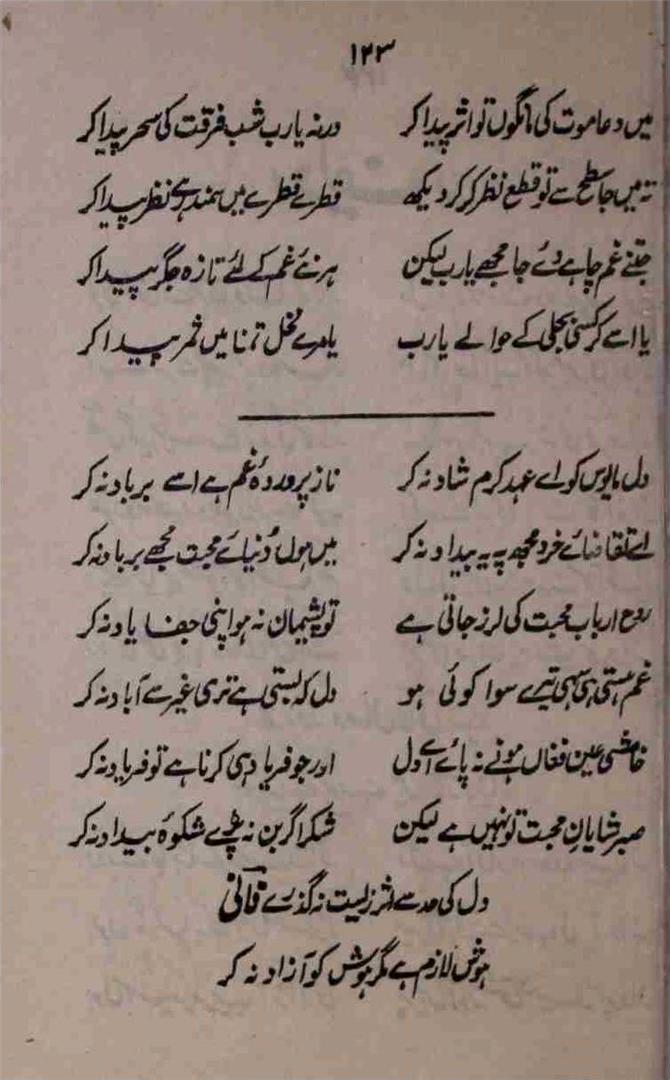 ۱۲۳
میں دعا موت کی مانگوں تو اثر پیدا کر ورنہ یارب شب فرقت کی سحر پیدا کر
تہ میں جا سطح سے تو قطع نظر کر کر دیکھ قطرے قطرے میں سمندر ہے نظر پیدا کر
جتنے غم چاہے دئے جا مجھے یارب لیکن ہر نئے غم کے لئے تازہ جگر پیدا کر
یا اسے کر کسی بجلی کے حوالے یارب یا مرے نخل تمنا میں ثمر پیدا کر
دل مایوس کو اے عہد کرم شاد نہ کر ناز پروردۂ غم ہے اسے برباد نہ کر
اے تقاضائے خرد مجھ پہ یہ بیداد نہ کر میں ہوں دُنیائے محبت مجھے برباد نہ کر
روح ارباب محبت کی لرز جاتی ہے تو پشیمان نہ ہو اپنی جفا یاد نہ کر
غم ہستی ہی سہی تیرے سوا کوئی ہو دل کہ بستی ہے تری غیر سے آباد نہ کر
خامشی عین فغاں ہونے نہ پائے اے دل اور جو فریاد ہی کرنا ہے تو فریاد نہ کر
صبر شایانِ محبت تو نہیں ہے لیکن شکر اگر بن نہ پڑے شکوۂ بیداد نہ کر
دل کی حد سے اثر زیست نہ گذرے فانی
ہوش لازم ہے مگر ہوش کو آزاد نہ کر